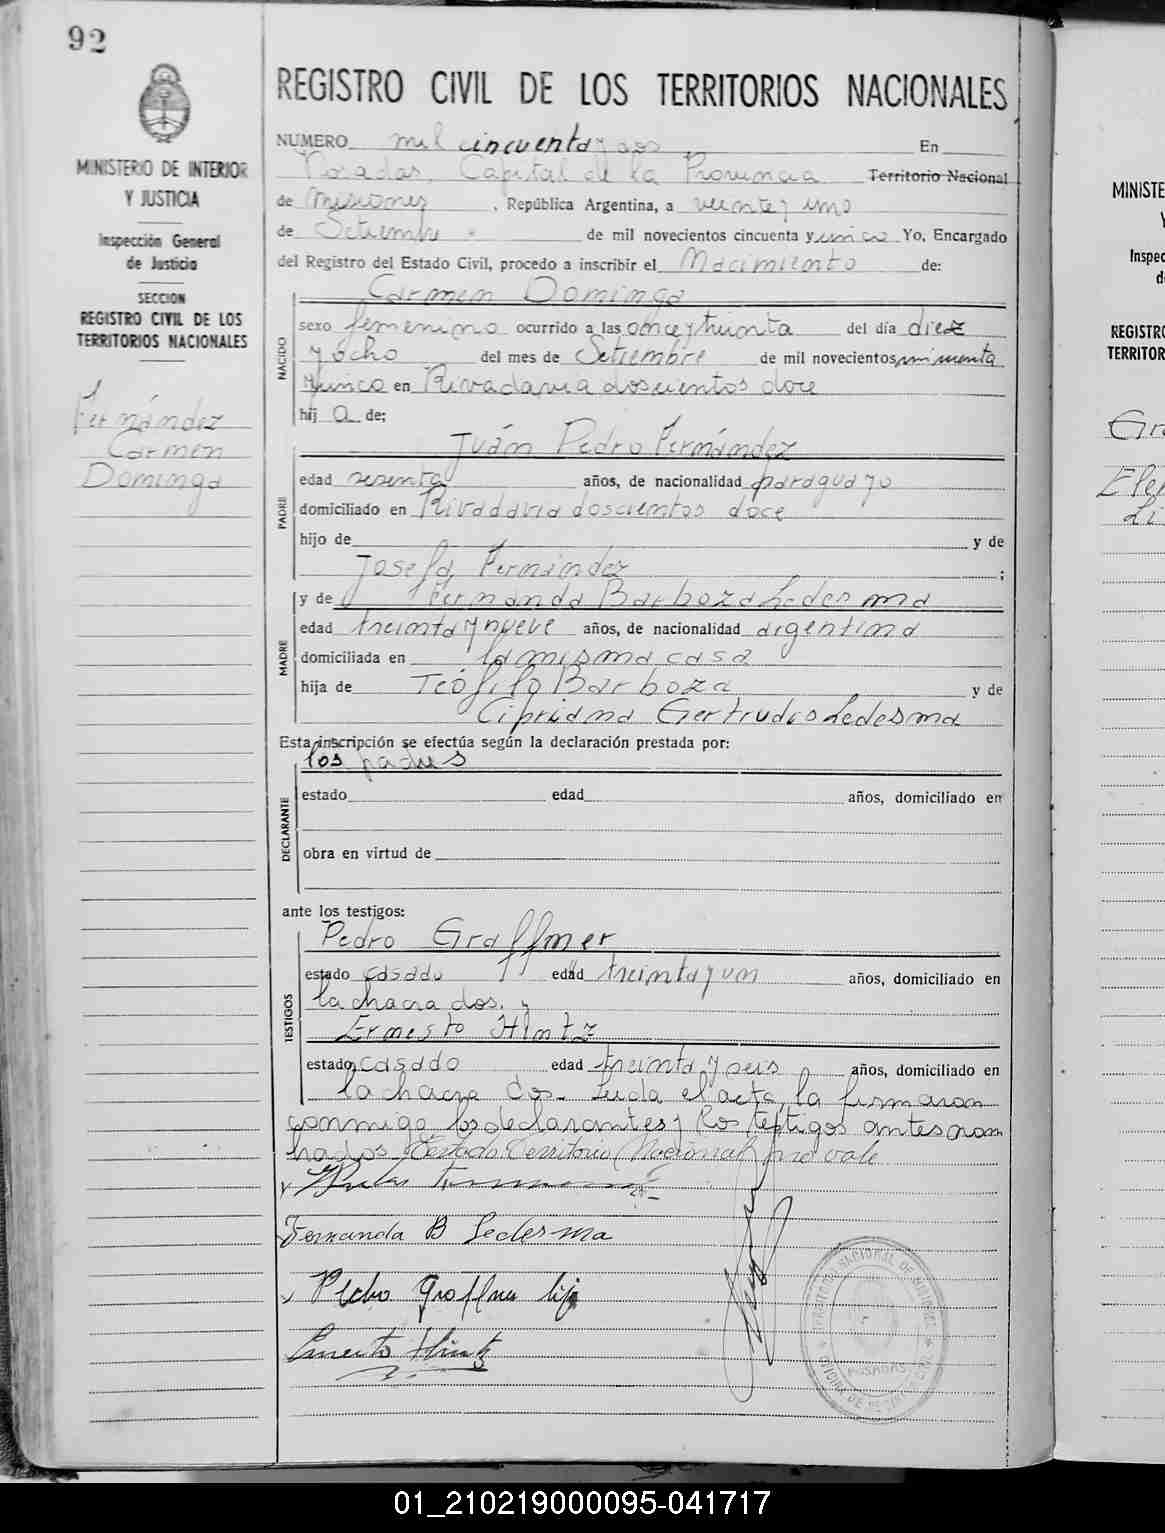 92
MINISTERIO DE INTERIOR
Y JUSTICIA
Inspección General
de Justicia
SECCION
REGISTRO CIVIL DE LOS
TERRITORIOS NACIONALES
Fernández
Carmen
Dominga
REGISTRO CIVIL DE LOS TERRITORIOS NACIONALES
NUMERO mil cincuenta y dos En
Posadas, Capital de la Provincia Territorio Nacional
de Misiones, República Argentina, a veinte y uno
de Setiembre de mil novecientos cincuenta y cinco Yo, Encargado
del Registro del Estado Civil, procedo a inscribir el Nacimiento de:
NACIDO
Carmen Dominga
sexo femenino ocurrido a las once y treinta del día diez
y ocho del mes de Setiembre de mil novecientos cincuenta
y cinco en Rivadavia doscientos doce
hij a de:
PADRE
Juán Pedro Fernández
edad sesenta años, de nacionalidad paraguayo
domiciliado en Rivadavia doscientos doce
hijo de y de
Josefa Fernández ;
MADRE
y de Fernanda Barboza Ledesma
edad treinta y nueve años, de nacionalidad argentina
domiciliada en la misma casa
hija de Teófilo Barboza y de
Cipriana Gertrudis Ledesma
Esta inscripción se efectúa según la declaración prestada por:
los padres
DECLARANTE
estado edad años, domiciliado en
obra en virtud de
ante los testigos:
TESTIGOS
Pedro Graffner
estado casado edad treinta y un años, domiciliado en
la chacra dos. y
Ernesto Hintz
estado casado edad treinta y seis años, domiciliado en
la chacra dos- Leida el acta, la firmaron
conmigo los declarantes y los testigos antes nom
brados Testado Territorio Nacional no vale
Fernanda B Ledesma
Pedro Graffner hijo
Ernesto Hintz
POSADAS
01_210219000095-041717